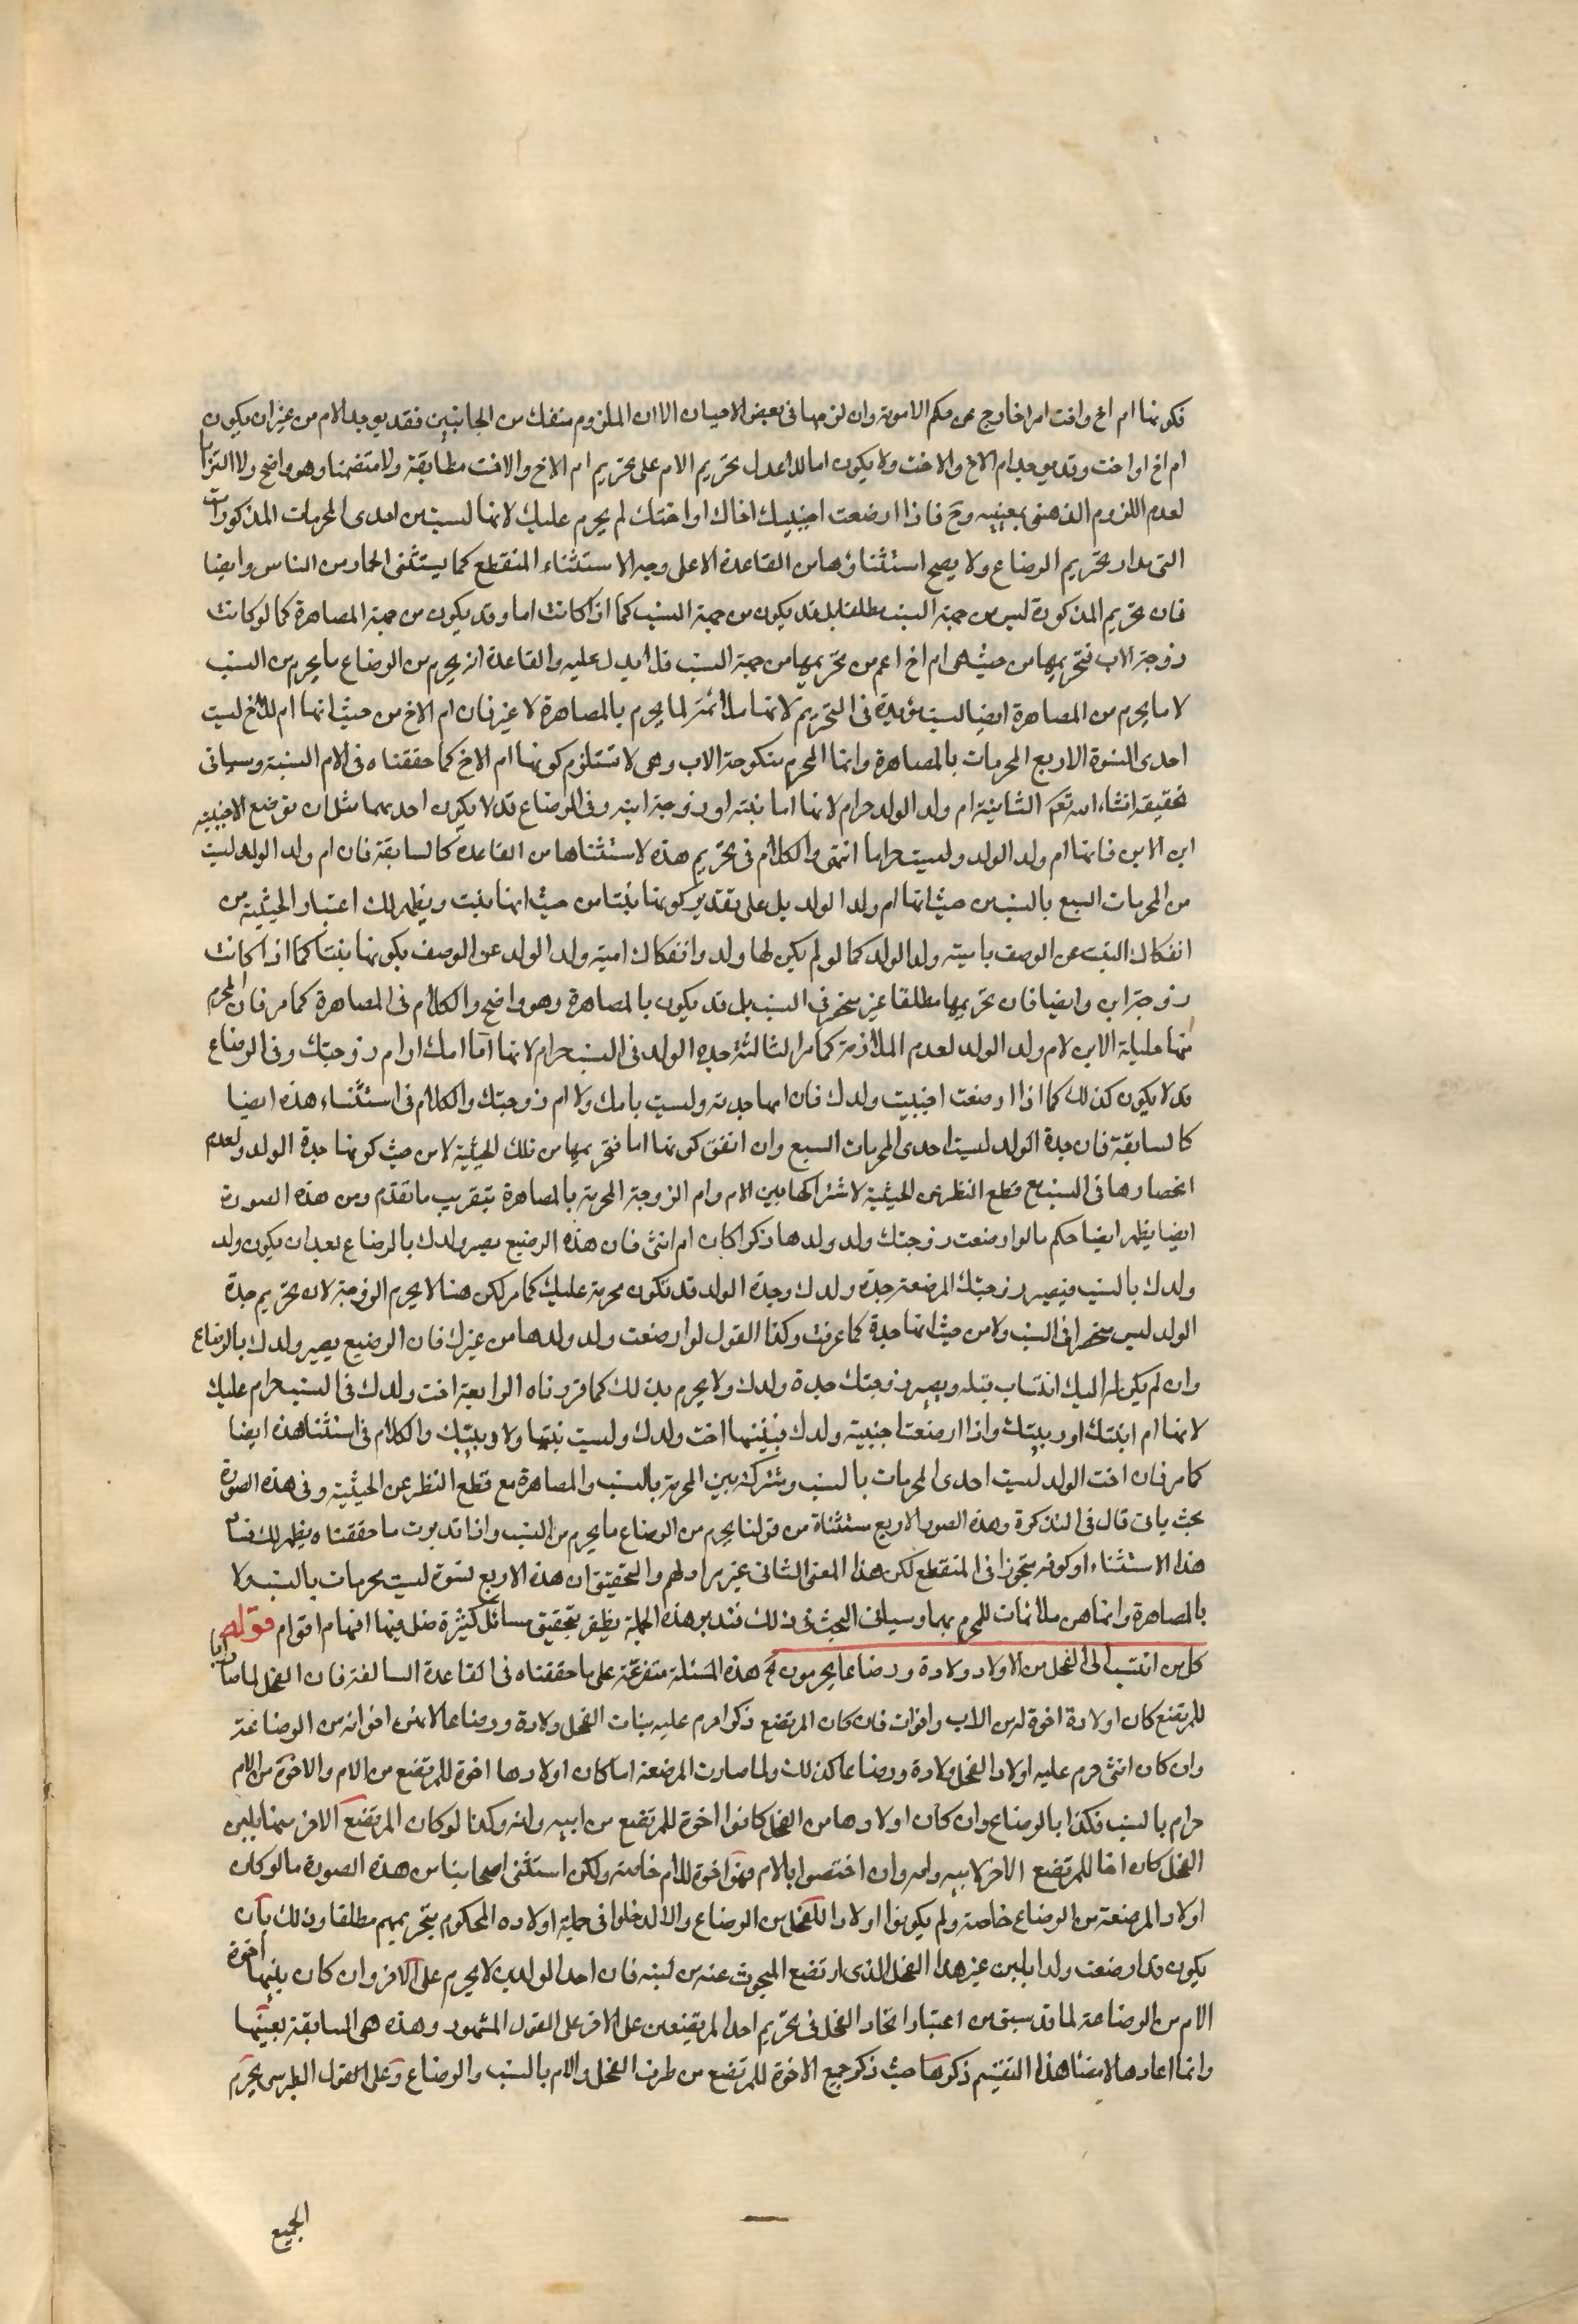 فكونها ام اخ واخت امر اخارج عن حكم الامومة وان لزمها فى بعض الاحيان الا ان الملزوم منفك من الجانبين فقد يوجد الام من غير ان يكون
ام اخ او اخت وقد يوجد ام الاخ والاخت ولا يكون اما لذا عدل تحريم الام على تحريم ام الاخ والاخت مطابقة ولا متضمنا وهو واضح ولا التزاما
لعدم اللزوم الذهنى بمعنييه وح فاذا ارضعت اجنبيك اخاك او اختك لم يحرم عليك لانها ليست من احدى المحرمات المذكورات
التى مدار تحريم الرضاع ولا يصح استثناؤها من القاعدة الا على وجه الاستثناء المنقطع كما يستثنى الحمار من الناس وايضا
فان تحريم المذكورة ليس من جهة النسب مطلقا بل قد يكون من جهة النسب كما اذا كانت اما وقد يكون من جهة المصاهرة كما لو كانت
زوجة الاب فتحريمها من حيث هى ام اخ اعم من تحريمها من جهة النسب فلا يدل عليه والقاعدة انه يحرم من الرضاع ما يحرم من النسب
لا ما يحرم من المصاهرة ايضا ليست مؤبدة فى التحريم لانها ملائمة لما يحرم بالمصاهرة لا غير فان ام الاخ من حيث انها ام للاخ ليست
احدى النسوة الاربع المحرمات بالمصاهرة وانما المحرم منكوحة الاب وهى لا تستلزم كونها ام الاخ كما حققناه فى الام النسبية وسياتى
تحقيقه انشاء الله تعم الثانية ام ولد الولد حرام لانها اما بنته او زوجة ابنه وفى الرضاع قد لا يكون احدهما مثل ان ترضع الاجنبية
ابن الابن فانها ام ولد الولد وليست حراما انتهى والكلام فى تحريم هذه لاستثناها من القاعدة كالسابقة فان ام ولد الولد ليست
من المحرمات السبع بالنسب من حيث انها ام ولد الولد بل على تقدير كونها بنتا من حيث انها بنت ويظهر لك اعتبار الحيثية من
انفكاك البنت عن الوصف باميته ولد الولد كما لو لم يكن لها ولد وانفكاك امية ولد الولد عن الوصف بكونها بنتا كما اذا كانت
زوجة ابن وايضا فان تحريمها مطلقا غير منحصر فى النسب بل قد يكون بالمصاهرة وهو واضح والكلام فى المصاهرة كما مر فان المحرم
منها حليلة الابن لام ولد الولد لعدم الملازمة كما مر الثالثة جدة الولد فى النسب حرام لانها اما امك او ام زوجتك وفى الرضاع
قد لا يكون كذلك كما اذا ارضعت اجنبيت ولدك فان امها جدته وليست بامك ولا ام زوجتك والكلام فى استثناء هذه ايضا
كالسابقة فان جدة الولد ليست احدى المحرمات السبع وان اتفق كونها اما فتحريمها من تلك الحيثية لا من حيث كونها جدة الولد ولعدم
انحصارها فى النسب مع قطع النظر عن الحيثية لاشتراكها بين الام وام الزوجة المحرمة بالمصاهرة بتقريب ما تقدم ومن هذه الصورة
ايضا يظهر ايضا حكم ما لو ارضعت زوجتك ولد ولدها ذكرا كان ام انثى فان هذه الرضيع يصير ولدك بالرضاع بعد ان يكون ولد
ولدك بالنسب فيصير زوجتك المرضعة جدة ولدك وجدة الولد قد تكون محرمة عليك كما مر لكن هنا لا يحرم الزوجة لان تحريم جدة
الولد ليس منحصرا فى النسب ولا من حيث انها جدة كما عرفت وكذا القول لو ارضعت ولد ولدها من غيرك فان الرضيع يصير ولدك بالرضاع
وان لم يكن له اليك انتساب قبله ويصير زوجتك جدة ولدك ولا يحرم بذلك كما قررناه الرابعة اخت ولدك فى النسب حرام عليك
لانها ام ابنتك او ربيبتك واذا ارضعت اجنبية ولدك فبنتها اخت ولدك وليست بنتها ولا ربيبتك والكلام فى استثناهذه ايضا
كما مر فان اخت الولد ليست احدى المحرمات بالنسب ومشتركة بين المحرمة بالنسب والمصاهرة مع قطع النظر عن الحيثية وفى هذه الصورة
بحث ياتى قال فى التذكرة وهذه الصور الاربع مستثناة من قولنا يحرم من الرضاع ما يحرم من النسب واذا تدبرت ما حققناه يظهر لك فساد
هذا الاستثناء او كونه متجوزا فى المنقطع لكن هذا المعنى الثانى غير مراد لهم والتحقيق ان هذه الاربع نسوة ليست محرمات بالنسب ولا
بالمصاهرة وانما هن ملائمات للمحرم بهما وسياتى البحث فى ذلك فتدبر هذه الجملة يظفر بتحقيق مسائل كثيرة ضل فيها افهام اقوام قوله
كل من انتسب الى الفحل من الاولاد ولادة ورضاعا يحرمون آه هذه المسئلة متفرعة على ما حققناه فى القاعدة السالفة فان الفحل لما صار ابا
للمرتضع كان اولادة اخوة له من الاب واخوات فان كان المرتضع ذكرا حرم عليه بنات الفحل ولادة ورضاعا لانهن اخواته من الرضاعة
وان كان انثى حرم عليه اولاد الفحل ولادة ورضاعا كذلك ولما صارت المرضعة اما كان اولادها اخوة للمرتضع من الام والاخوة من الام
حرام بالنسب فكذا بالرضاع وان كان اولادها من الفحل كانوا اخوة للمرتضع من ابيه وامه وكذا لو كان المرتضع الاخر منها بلبن
الفحل كان اخا للمرتضع الاخر لابيه وامه وان اختصوا بالام فهو اخوة للام خاصة ولكن استثنى اصحابنا من هذه الصورة ما لو كان
اولاد المرضعة من الرضاع خاصة ولم يكونوا اولاد الفحل من الرضاع والا لدخلوا فى جملة اولاده المحكوم بتحريمهم مطلقا وذلك بان
يكون قد ارضعت ولدا بلبن غير هذا الفحل الذى ارتضع المبحوث عنه من لبنه فان احد الولدين لا يحرم على الاخر وان كان بينهما اخوة
الام من الرضاعة لما قد سبق من اعتبار اتحاد الفحل فى تحريم احد المرتضعين على الاخر على القول المشهور وهذه هى السابقة بعينها
وانما اعادها لاقتضاهذا التقسيم ذكرها حيث ذكر جميع الاخوة للمرتضع من طرف الفحل والام بالنسب والرضاع وعلى القول الطبرسى يحرم
الجميع